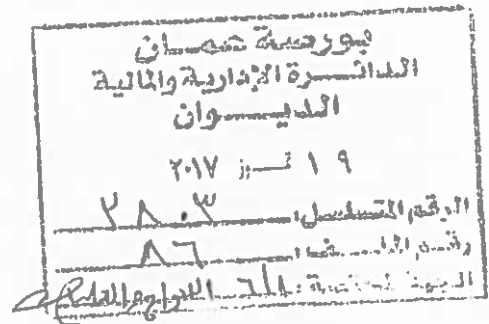 بورصة عمان
الدائرة الإدارية والمالية
الديوان
١٩ تموز ٢٠١٧
الرقم المتسلسل: ٢٨٠٣
رقم الملف: ٨٦
الجهة المختصة: